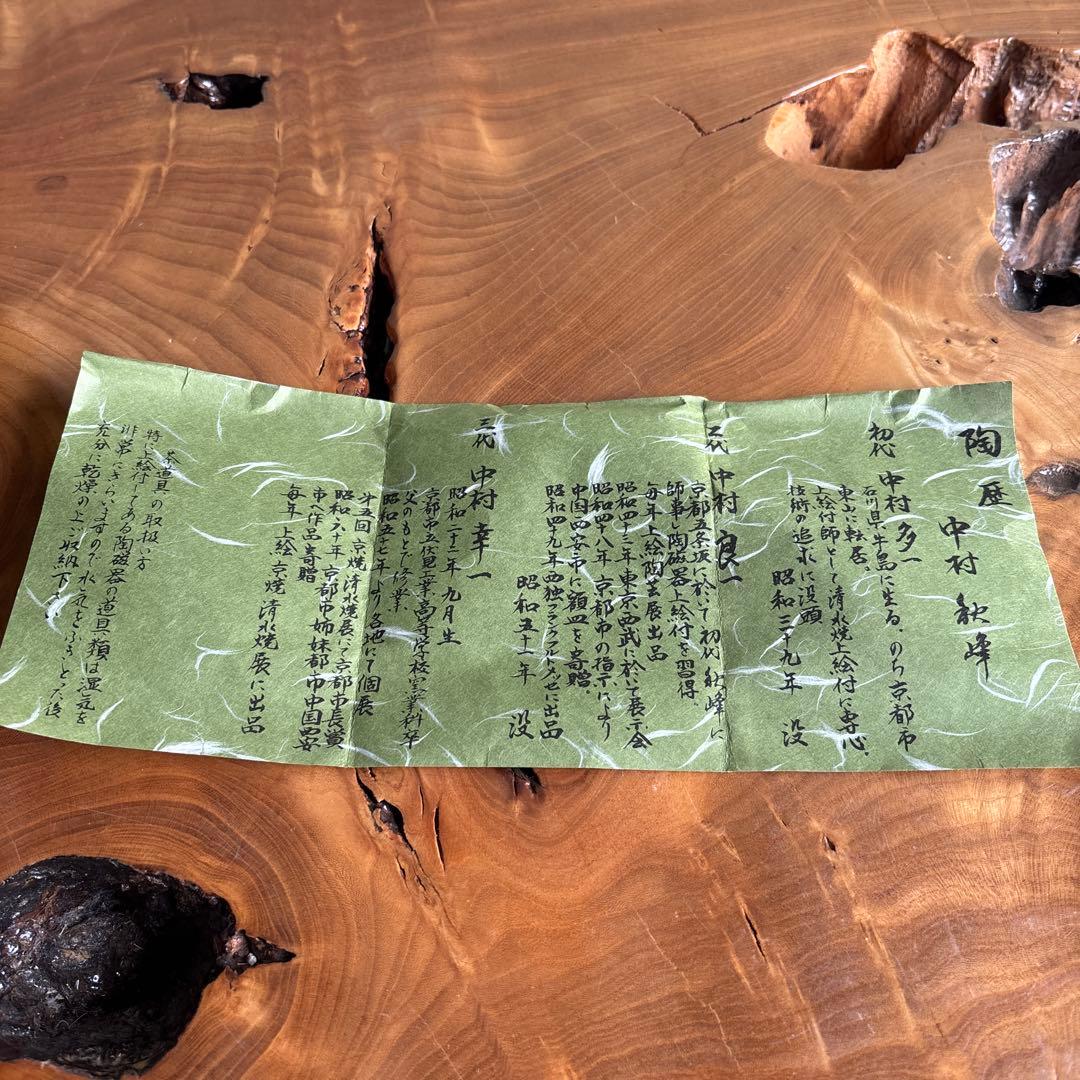 陶歴
中村 秋峰
初代 中村 多一
石川県牛島に生る。のち京都市
東山に転居。
上絵付師として清水焼上絵付に専心。
技術の追求に没頭
昭和三十九年 没
二代 中村 良一
京都五条坂に於て初代秋峰に
師事し陶磁器上絵付を習得。
毎年上絵陶芸展出品
昭和四十三年東京西武に於いて展示会
昭和四八年京都市の指示により
中国西安市に額皿を寄贈
昭和四九年西独フランクフルトメッセに出品
昭和五十一年 没
三代 中村 幸一
昭和二十二年九月生
京都市立伏見工業高等学校窯業科卒
父のもとで修業
昭和五七年より各地にて個展
第五回京焼清水焼展にて京都市長賞
昭和六十年京都市姉妹都市中国西安
市へ作品寄贈
毎年上絵京焼清水焼展に出品
茶道具の取扱い方
特に上絵付してある陶磁器の道具類は湿元を
非常にきらいますので水気をふきとった後
充分に乾燥の上ご収納下さい